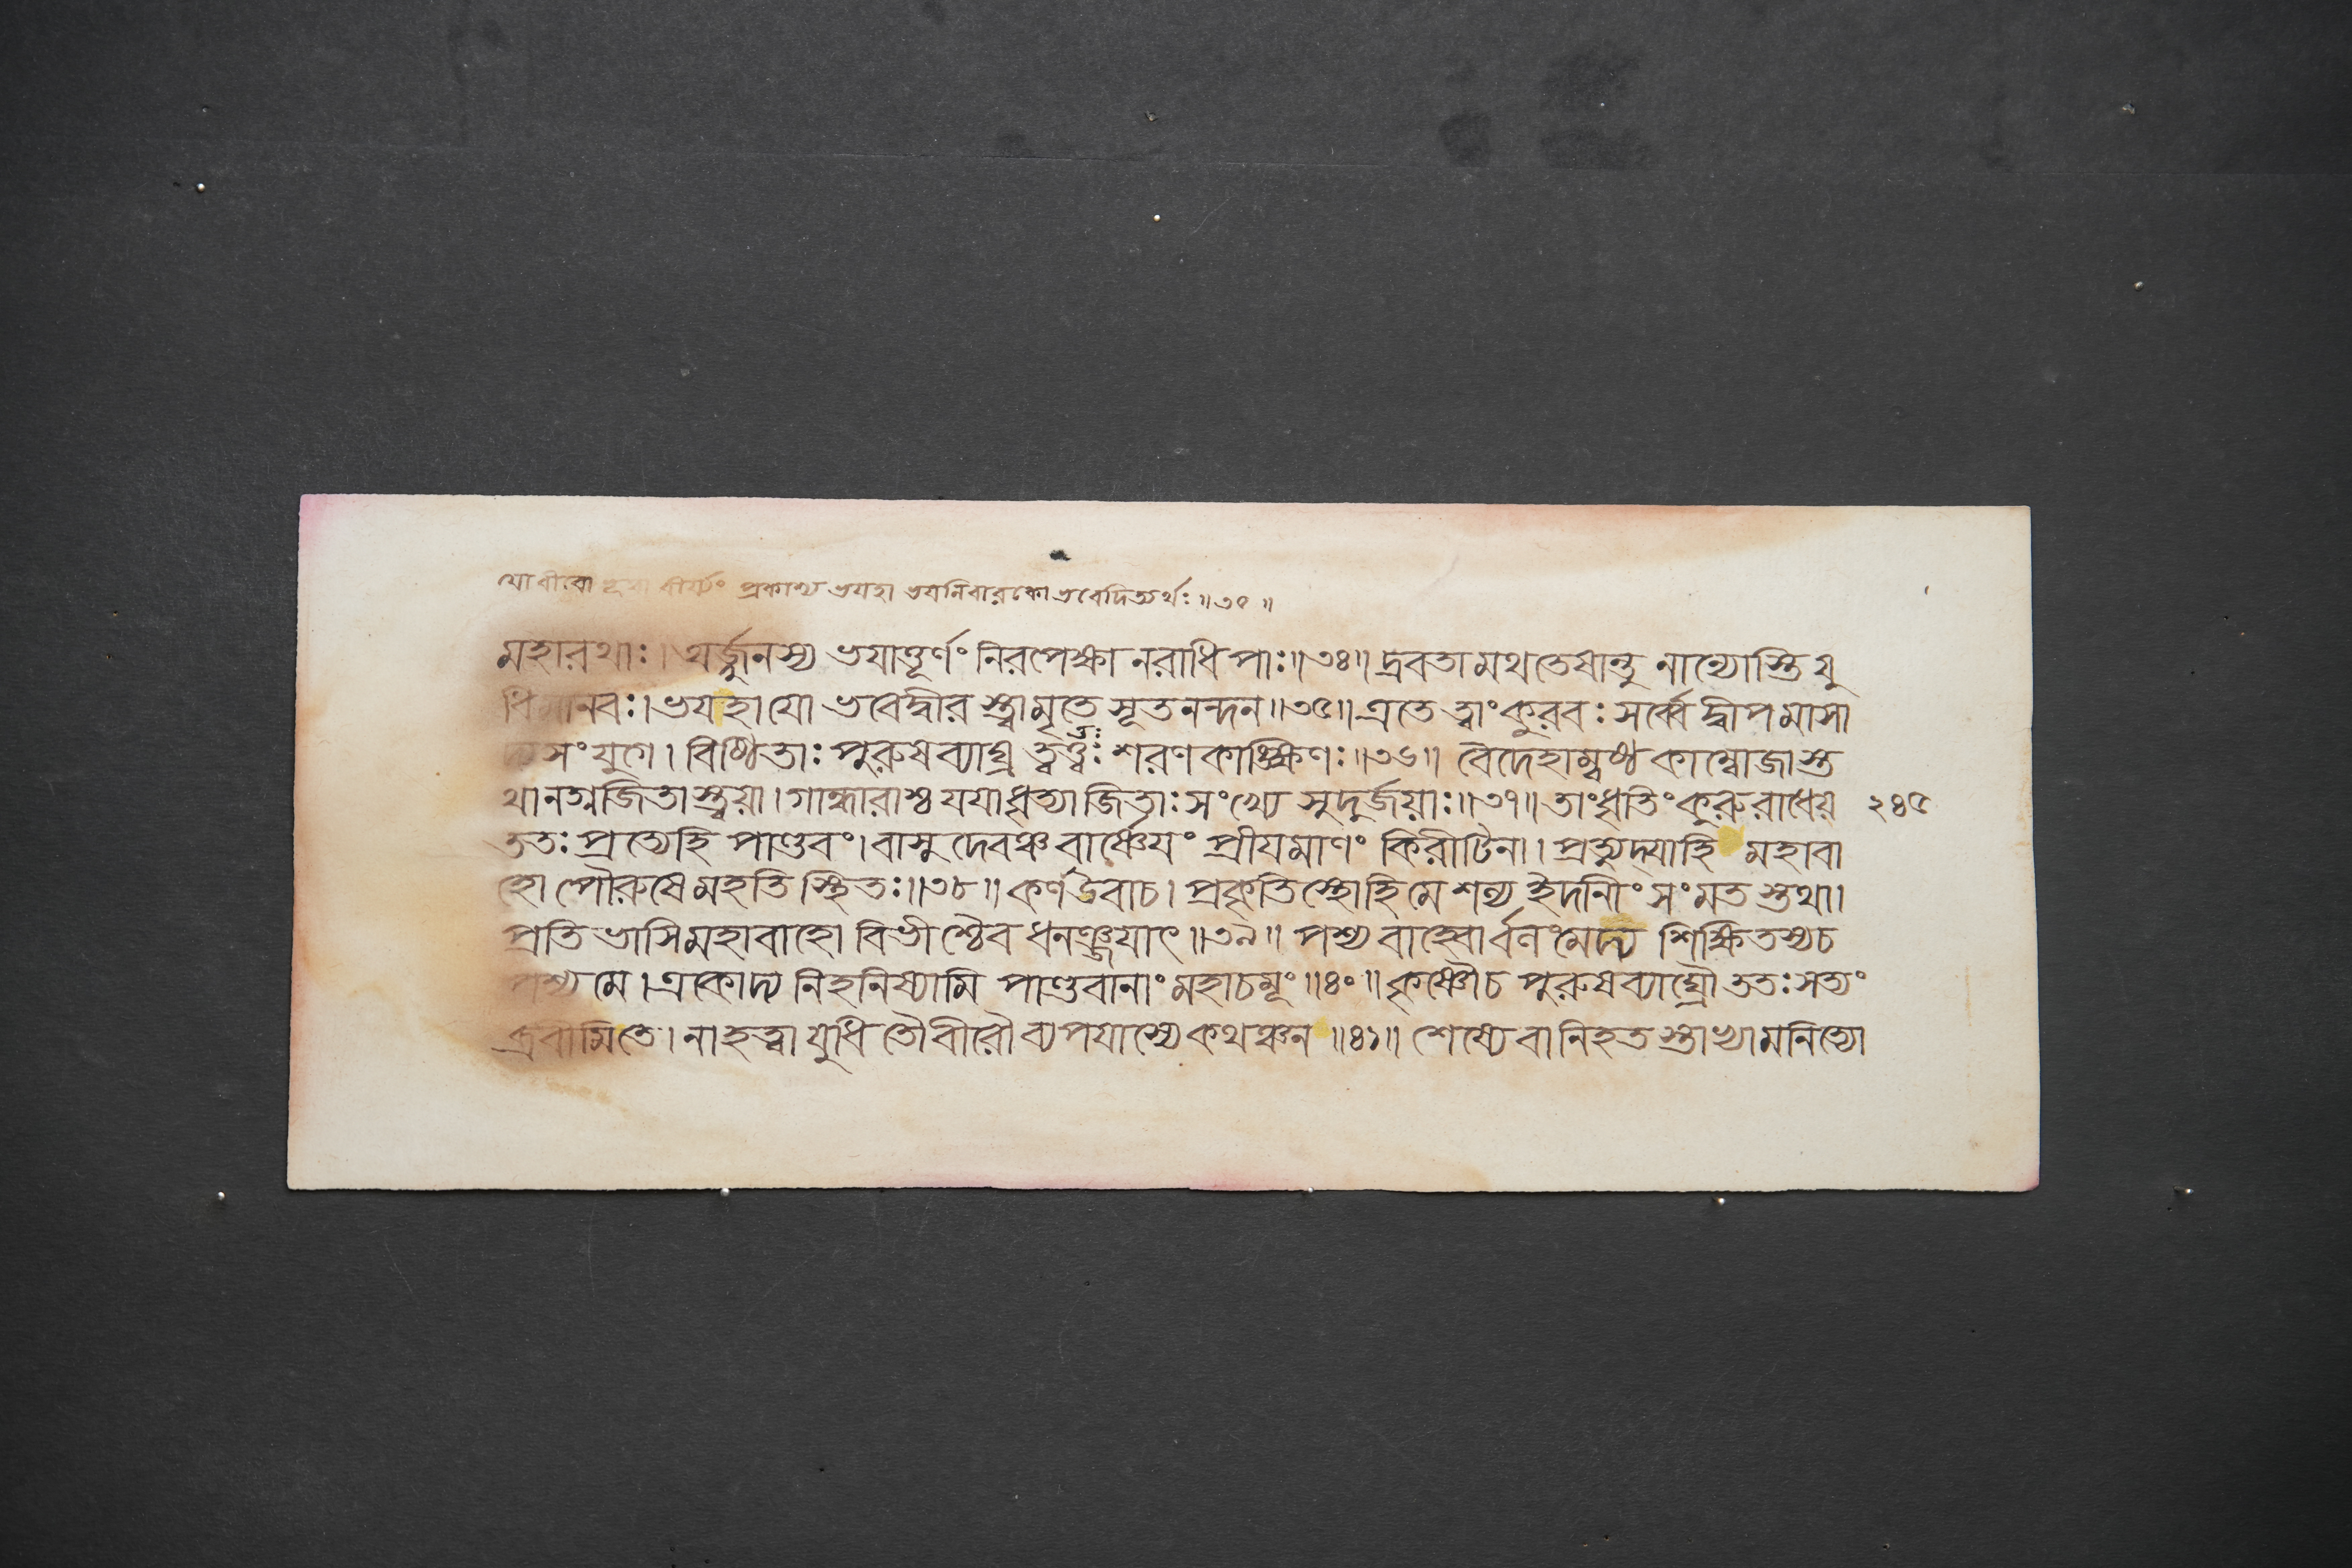 যো বীরো বীর্য্যং প্রকাশ্য ভয়হা ভয়নিবারকো ভবেদিত্যর্থঃ ॥৩৫॥
মহারথাঃ। অর্জ্জুনস্য ভযাত্তূর্ণং নিরপেক্ষা নরাধিপাঃ॥৩৪॥ দ্রবতামথতেষান্তু নান্যোস্তি যু
ধিমানবঃ। ভযহা যো ভবেদ্বীর স্ত্বামৃতে সূতনন্দন॥৩৫॥ এতে ত্বাং কুরবঃ সর্ব্বে দ্বীপমাসা
দ্যসংযুগে। বিষ্ঠিতাঃ পুরুষব্যাঘ্র ত্বত্তঃ শরণকাঙ্ক্ষিণঃ॥৩৬॥ বৈদেহাম্বষ্ঠকাম্বোজাস্ত
থানগ্নজিতাস্ত্বয়া। গান্ধারাশ্চ যযাধৃত্যা জিতাঃ সংখ্যে সুদুর্জয়াঃ॥৩৭॥ তাংধৃতিং কুরুরাধেয় ২৪৫
ততঃ প্রত্যেহি পাণ্ডবং। বাসুদেবঞ্চ বার্ষ্ণেযং প্রীযমাণং কিরীটিনা। প্রত্যুদ্যাহি মহাবা
হো পৌরুষে মহতি স্থিতঃ॥৩৮॥ কর্ণউবাচ। প্রকৃতিস্থোহি মে শল্য ইদানীং সংমতস্তথা।
প্রতিভাসি মহাবাহো বিভীশ্চৈব ধনঞ্জযাৎ॥৩৯॥ পশ্য বাহ্বোর্বলংমেদ্য শিক্ষিতস্যচ
পশ্য মে। একোদ্য নিহনিষ্যামি পাণ্ডবানাং মহাচমূং॥৪০॥ কৃষ্ণৌচ পুরুষব্যাঘ্রৌ ততঃ সত্যং
ব্রবীমিতে। নাহত্বা যুধি তৌবীরৌ ব্যপযাস্যে কথঞ্চন ॥৪১॥ শেষ্যে বা নিহতস্তাভ্যামনিত্যো